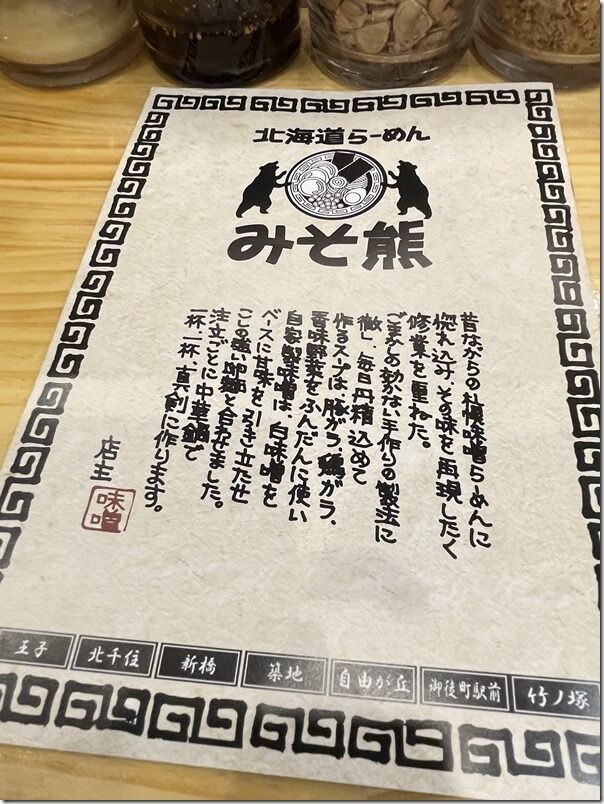 北海道らーめん
みそ熊
昔ながらの札幌味噌らーめんに
惚れ込み、その味を再現したく
修業を重ねた。
ごまかしの効かない手作りの製法に
徹し、毎日丹精込めて
作るスープは、豚がら、鶏がら、
香味野菜をふんだんに使い
自家製味噌は、白味噌を
ベースに甘味を引き立たせ
こしの強い卵麺と合わせました。
注文ごとに中華鍋で
一杯、一杯、真剣に作ります。
店主
味噌
王子
北千住
新橋
築地
自由が丘
御徒町駅前
竹ノ塚